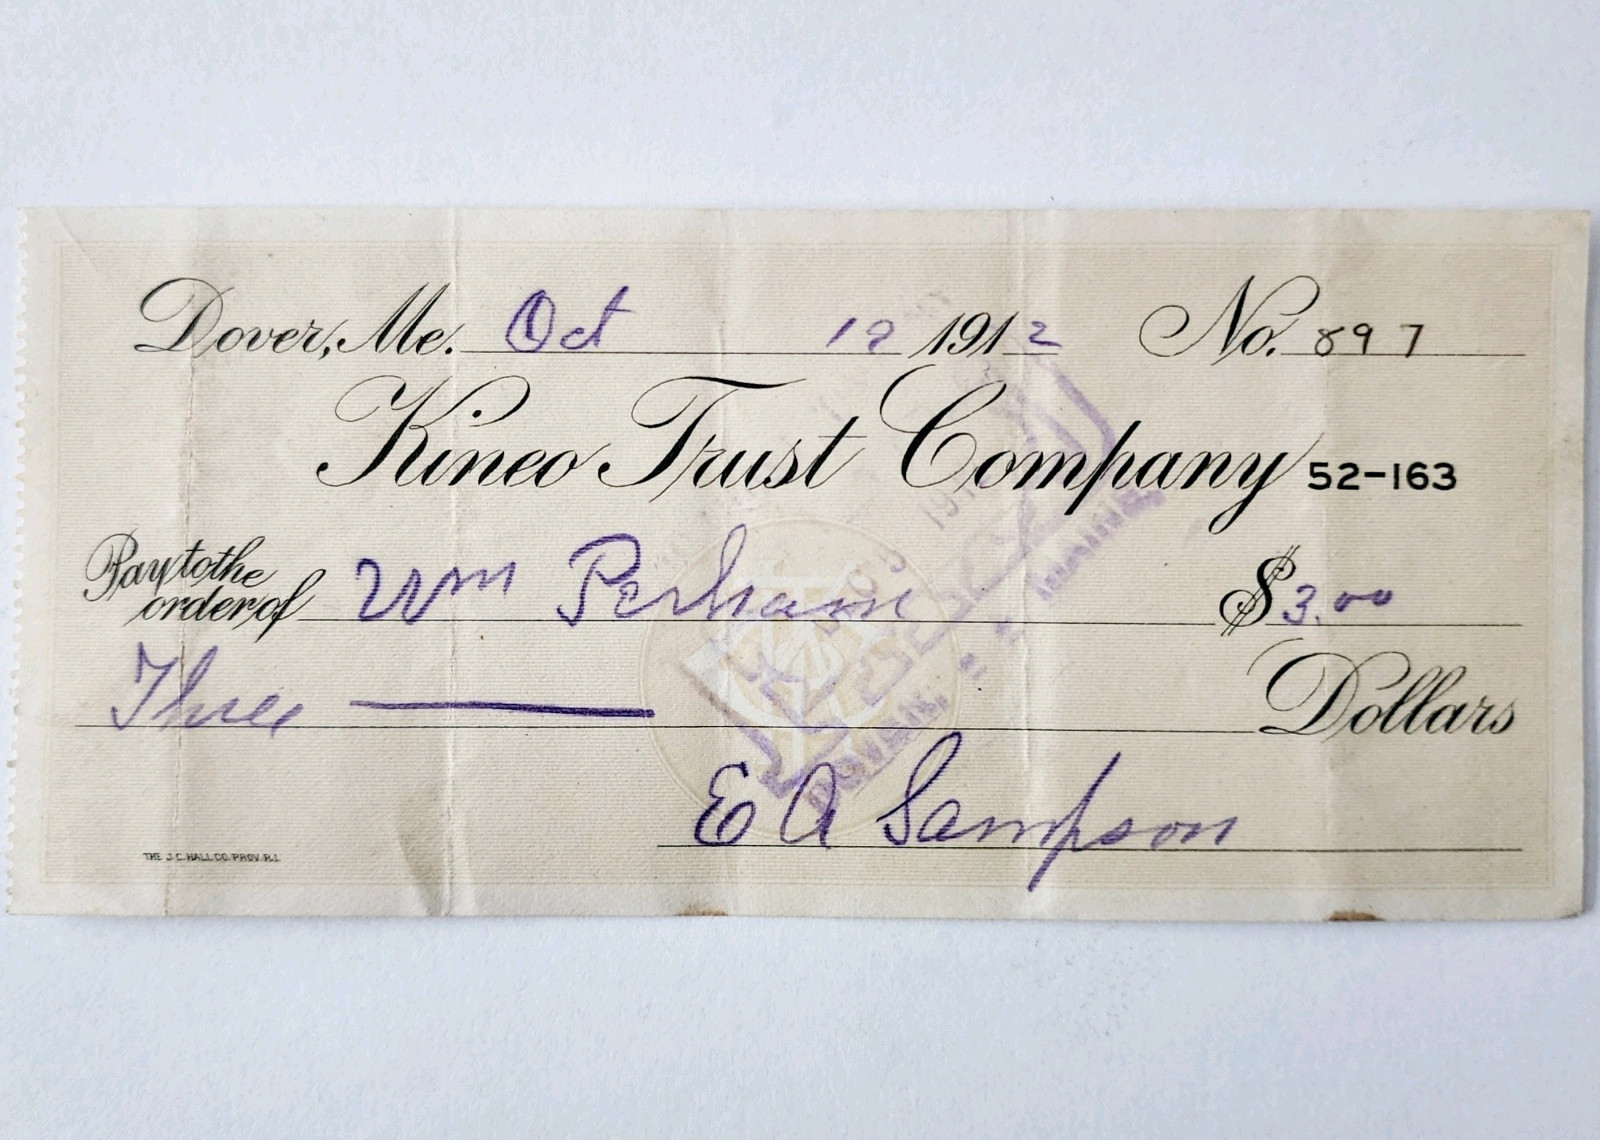 Dover, Me. Oct 18 1912 No. 897
Kineo Trust Company 52-163
Pay to the order of Wm Perham $3.00
Three Dollars
E A Sampson
THE J.C. HALL CO. PROV. R.I.